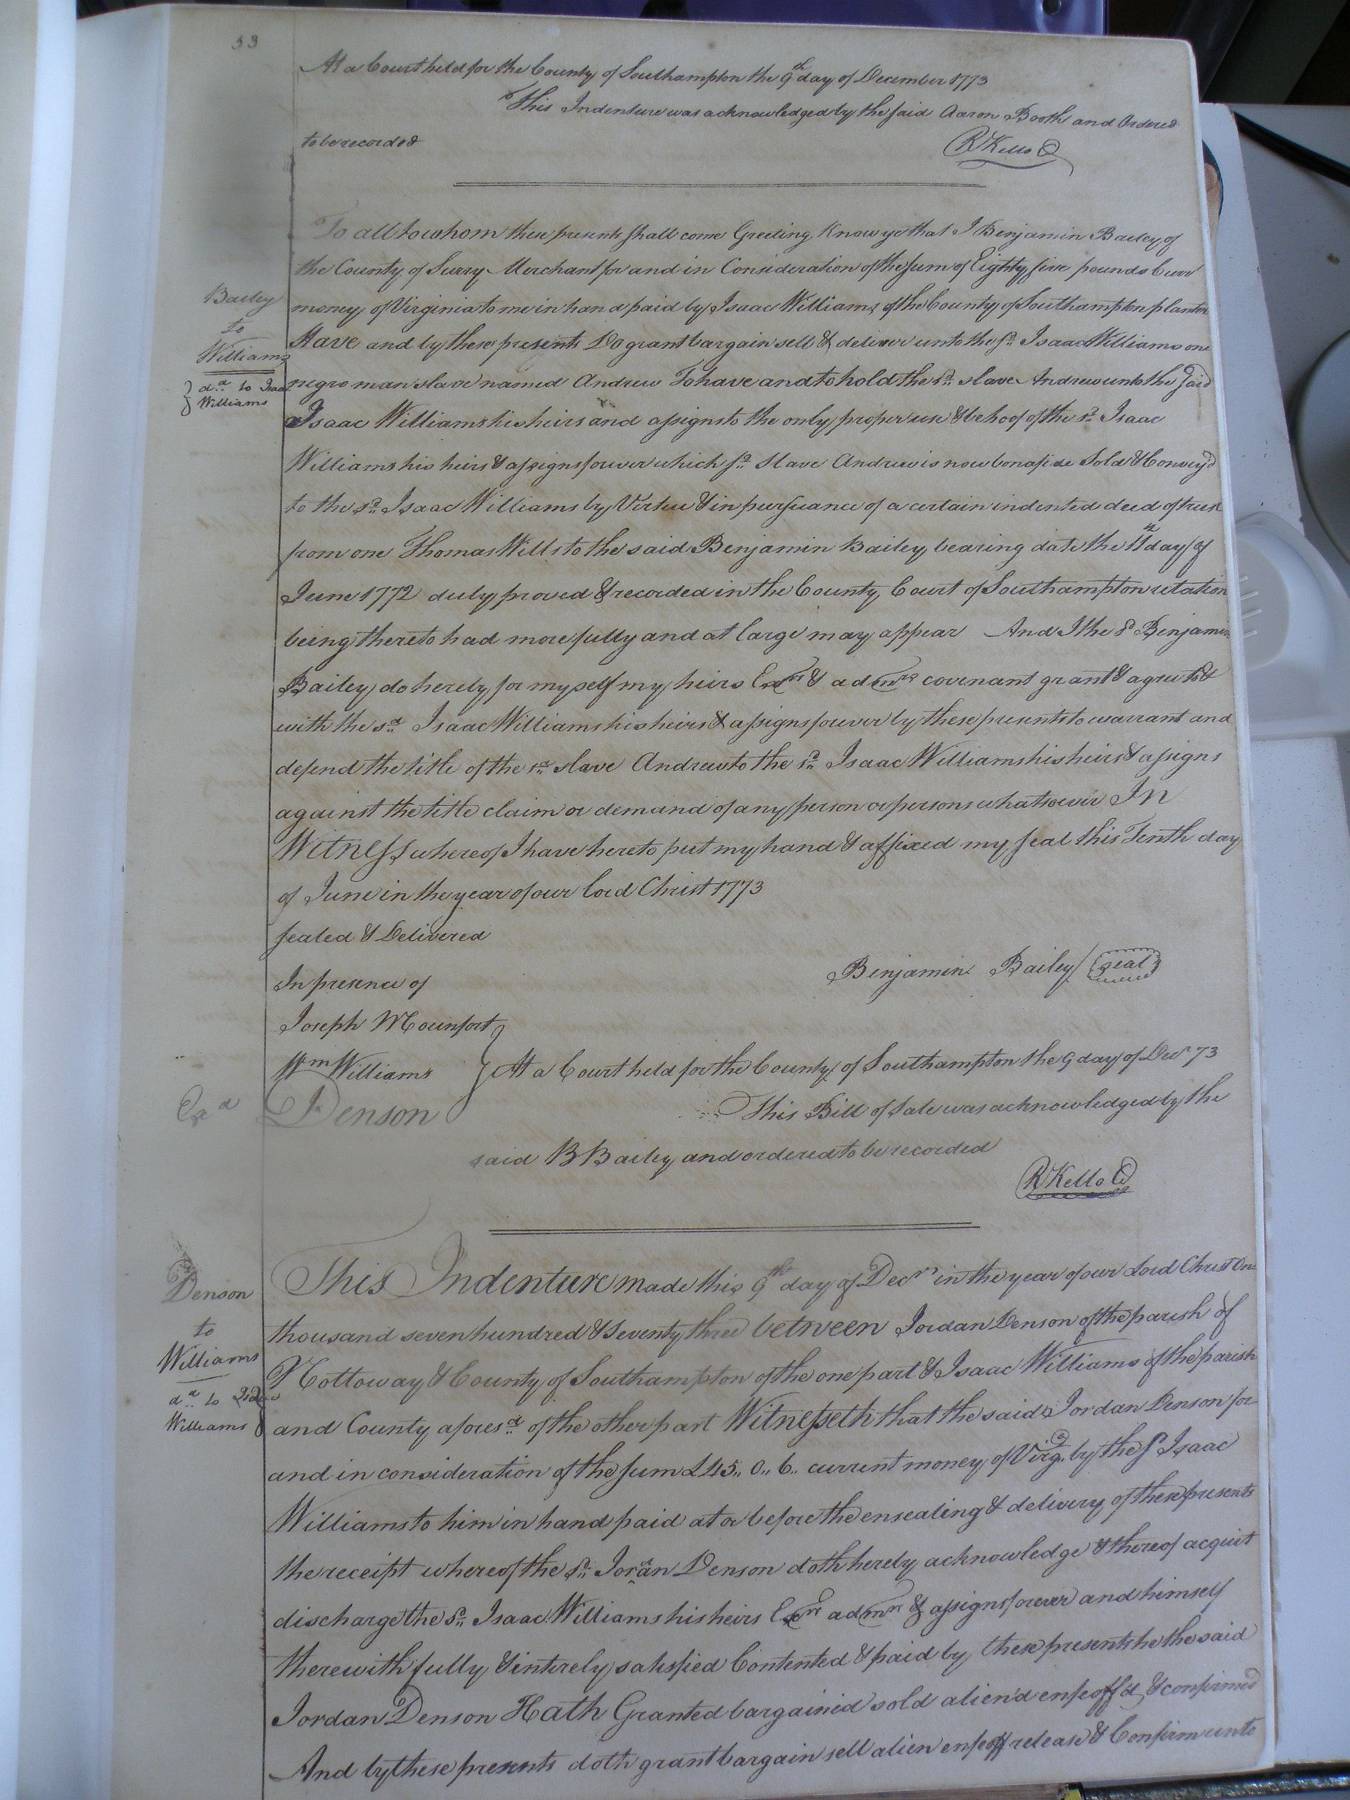 33
At a Court held for the County of Southampton the 9th day of December 1773
This Indenture was acknowledged by the said Aaron Booth and Ordered
to be recorded
R Kello C
To all to whom these presents shall come Greeting Know ye that I Benjamin Bailey of
the County of Surry Merchant for and in Consideration of the sum of Eighty five pounds Curr
money of Virginia to me in hand paid by Isaac Williams of the County of Southampton planter
Have and by these presents Do grant bargain sell & deliver unto the sd. Isaac Williams one
negro man slave named Andrew To have and to hold the sd. slave Andrew unto the said
Isaac Williams his heirs and assigns to the only proper use & behoof of the sd. Isaac
Williams his heirs & assigns forever which sd. slave Andrew is now bonafide Sold & Convey'd
to the sd. Isaac Williams by Virtue & in pursuance of a certain indented deed of trust
from one Thomas Wills to the said Benjamin Bailey bearing date the day of
June 1772 duly proved & recorded in the County Court of Southampton relation
being thereto had more fully and at large may appear And I the sd Benjamin
Bailey do hereby for myself my heirs Exrs & admrs covenant grant & agree to &
with the sd. Isaac Williams his heirs & assigns forever by these presents to warrant and
defend the title of the sd. slave Andrew to the sd. Isaac Williams his heirs & assigns
against the title claim or demand of any person or persons whatsoever In
Witness whereof I have hereto put my hand & affixed my seal this Tenth day
of June in the year of our Lord Christ 1773
Sealed & Delivered
In presence of
Benjamin Bailey (seal)
Joseph Mounfort
Wm Williams
At a Court held for the County of Southampton the 9 day of Decr 73
J. Denson
This Bill of Sale was acknowledged by the
said B Bailey and ordered to be recorded
R Kello C
Bailey
to
Williams
dd to Isaac
Williams
Exd
This Indenture made this 9th day of Decr in the year of our Lord Christ One
thousand seven hundred & Seventy three between Jordan Denson of the parish of
Nottoway & County of Southampton of the one part & Isaac Williams of the parish
and County aforesd. of the other part Witnesseth that the said Jordan Denson for
and in consideration of the sum £45.. 0.. 6.. current money of Virga. by the sd Isaac
Williams to him in hand paid at or before the ensealing & delivery of these presents
the receipt whereof the sd. Jordan Denson doth hereby acknowledge & thereof acquit
discharge the sd. Isaac Williams his heirs Exrs admrs & assigns forever and himself
therewith fully & intirely satisfied Contented & paid by these presents he the said
Jordan Denson Hath Granted bargained sold alien'd enfeoff'd & confirmed
And by these presents doth grant bargain sell alien enfeoff release & Confirm unto
Denson
to
Williams
dd to
Williams